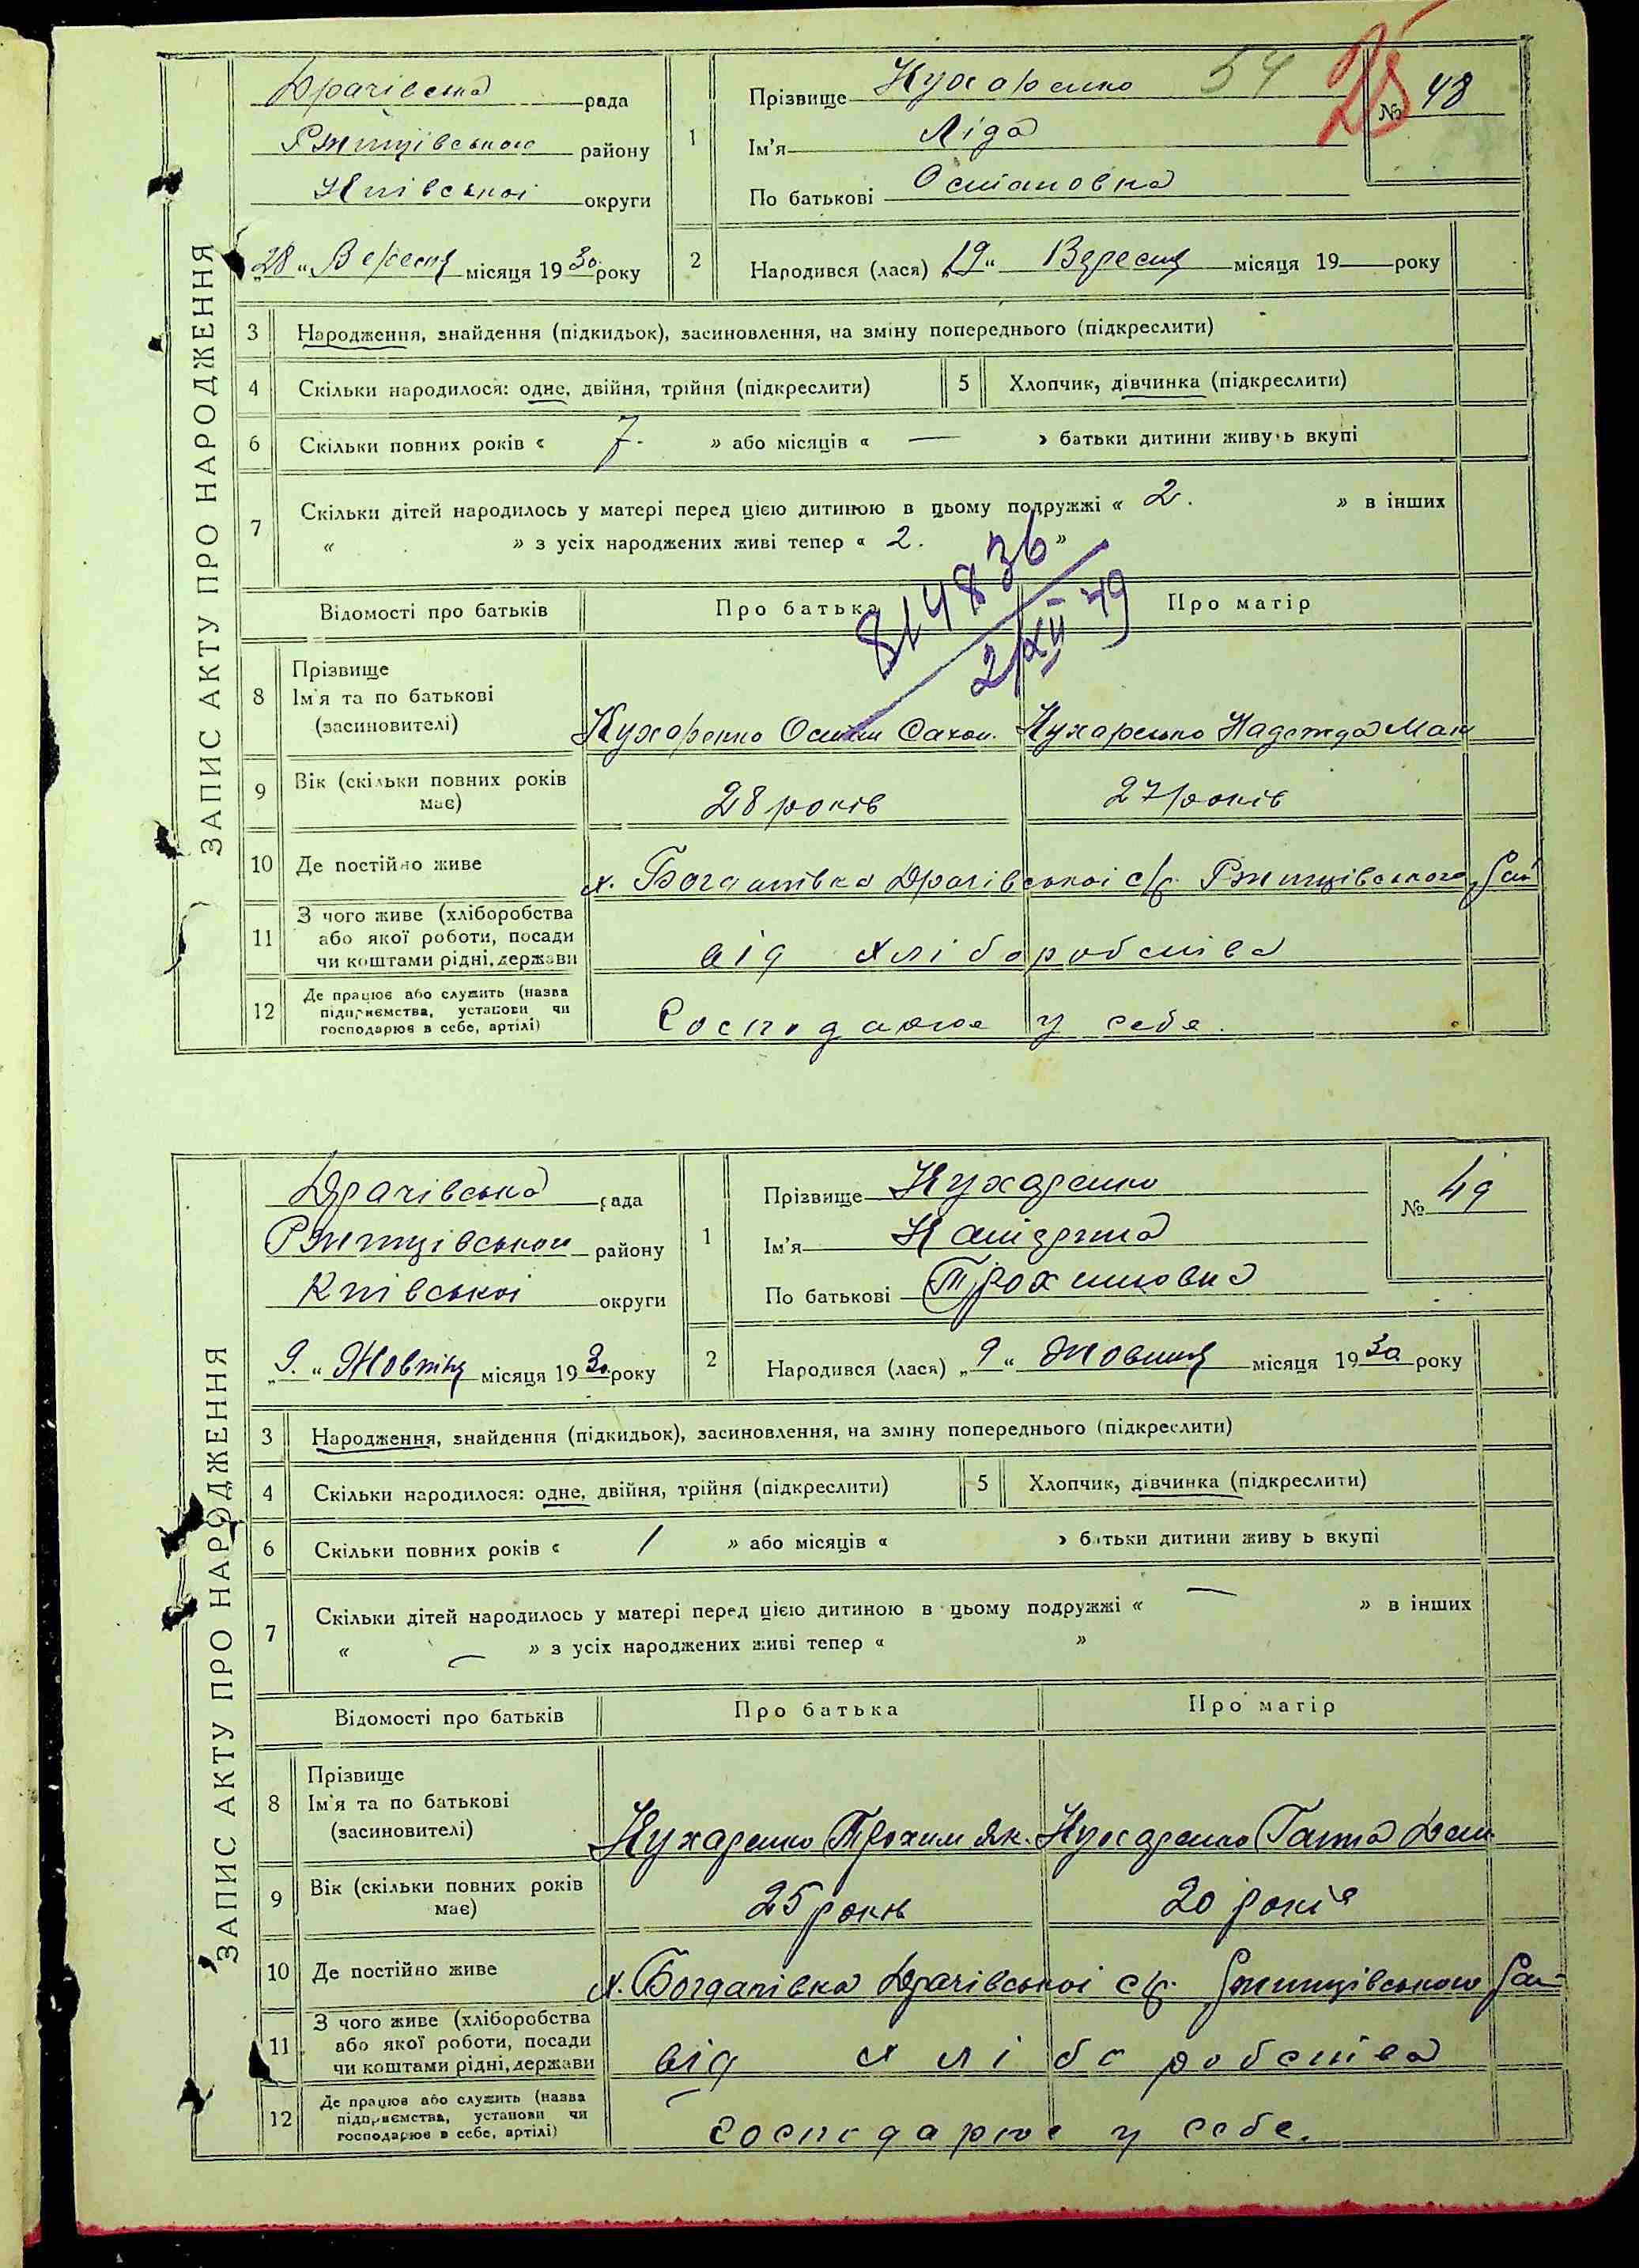 ЗАПИС АКТУ ПРО НАРОДЖЕННЯ
Драчівська рада
Ржищівського району
Київської округи
„28“ Вересня місяця 1930 року
1 Прізвище Кухаренко
54 25
№ 48
Ім'я Ліда
По батькові Остаповна
2 Народився (лася) „19“ Вересня місяця 19 року
3 Народження, знайдення (підкидьок), засиновлення, на зміну попереднього (підкреслити)
4 Скільки народилося: одне, двійня, трійня (підкреслити) 5 Хлопчик, дівчинка (підкреслити)
6 Скільки повних років « 7. » або місяців « — » батьки дитини живуть вкупі
7 Скільки дітей народилось у матері перед цією дитиною в цьому подружжі « 2. » в інших
« » з усіх народжених живі тепер « 2. »
814836
2/XII-49
Відомості про батьків Про батька Про матір
8 Прізвище
Ім'я та по батькові
(засиновителі)
Кухаренко Остап Кухаренко Надежда
9 Вік (скільки повних років має) 28 років 27 років
10 Де постійно живе х. Богданівка Драчівської с/р. Ржищівського рай
11 З чого живе (хліборобства
або якої роботи, посади
чи коштами рідні, держави
від хліборобства
12 Де працює або служить (назва
підприємства, установи чи
господарює в себе, артілі)
Господарює у себе.
ЗАПИС АКТУ ПРО НАРОДЖЕННЯ
Драчівська рада
Ржищівського району
Київської округи
„9.“ Жовтня місяця 1930 року
1 Прізвище Кухаренко
№ 49
Ім'я Катерина
По батькові Трохимовна
2 Народився (лася) „9“ Жовтня місяця 1930 року
3 Народження, знайдення (підкидьок), засиновлення, на зміну попереднього (підкреслити)
4 Скільки народилося: одне, двійня, трійня (підкреслити) 5 Хлопчик, дівчинка (підкреслити)
6 Скільки повних років « 1 » або місяців « » батьки дитини живуть вкупі
7 Скільки дітей народилось у матері перед цією дитиною в цьому подружжі « — » в інших
« — » з усіх народжених живі тепер « »
Відомості про батьків Про батька Про матір
8 Прізвище
Ім'я та по батькові
(засиновителі)
Кухаренко Трохим Як. Кухаренко Ганна Дем
9 Вік (скільки повних років має) 25 років 20 років
10 Де постійно живе х. Богданівка Драчівської с/р. Ржищівського рай
11 З чого живе (хліборобства
або якої роботи, посади
чи коштами рідні, держави
від хліборобства
12 Де працює або служить (назва
підприємства, установи чи
господарює в себе, артілі)
господарює у себе.